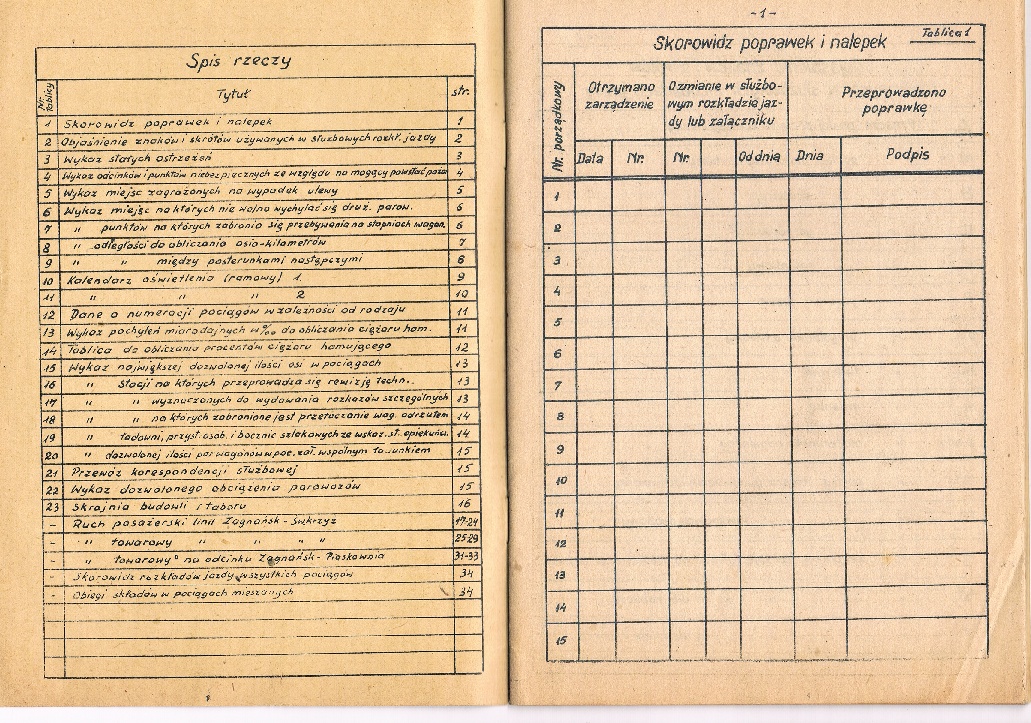 Spis rzeczy
Nr. tablicy Tytuł str.
1 Skorowidz poprawek i nalepek 1
2 Objaśnienie znaków i skrótów używanych w służbowych rozkł. jazdy 2
3 Wykaz stałych ostrzeżeń 3
4 Wykaz odcinków i punktów niebezpiecznych ze względu na mogący powstać pożar 4
5 Wykaz miejsc zagrożonych na wypadek ulewy 5
6 Wykaz miejsc na których nie wolno wychylać się druż. parow. 6
7 " punktów na których zabronio się przebywania na stopniach wagon. 6
8 " odległości do obliczania osio-kilometrów 7
9 " " między posterunkami następczymi 8
10 Kalendarz oświetlenia (ramowy) 1 9
11 " " " 2 10
12 Dane o numeracji pociągów w zależności od rodzaju 11
13 Wykaz pochyleń miarodajnych w ‰ do obliczania ciężaru ham. 11
14 Tablica do obliczania procentów ciężaru hamującego 12
15 Wykaz największej dozwolonej ilości osi w pociągach 13
16 " Stacji na których przeprowadza się rewizję techn. 13
17 " " wyznaczonych do wydawania rozkazów szczególnych 13
18 " " na których zabronione jest przetaczanie wag. odrzutem 14
19 " ładowni, przyst. osob. i bocznic szlakowych ze wskaz. st. opiekuńcz. 14
20 " dozwolonej ilości par wagonów w poc. zał. wspólnym ładunkiem 15
21 Przewóz korespondencji służbowej 15
22 Wykaz dozwolonego obciążenia parowozów 15
23 Skrajnia budowli i taboru 16
- Ruch pasażerski linii Zagnańsk - 17-24
- " towarowy " " " " 25-29
- " towarowy" na odcinku Zagnańsk - Piaskownia 31-33
- Skorowidz rozkładów jazdy wszystkich pociągów 34
- Obiegi składów w pociągach mieszanych 34
-1-
Skorowidz poprawek i nalepek Tablica 1
Nr. porządkowy
Otrzymano zarządzenie
O zmianie w służbowym rozkładzie jazdy lub załączniku
Przeprowadzono poprawkę
Data Nr. Nr. Od dnia Dnia Podpis
1
2
3
4
5
6
7
8
9
10
11
12
13
14
15